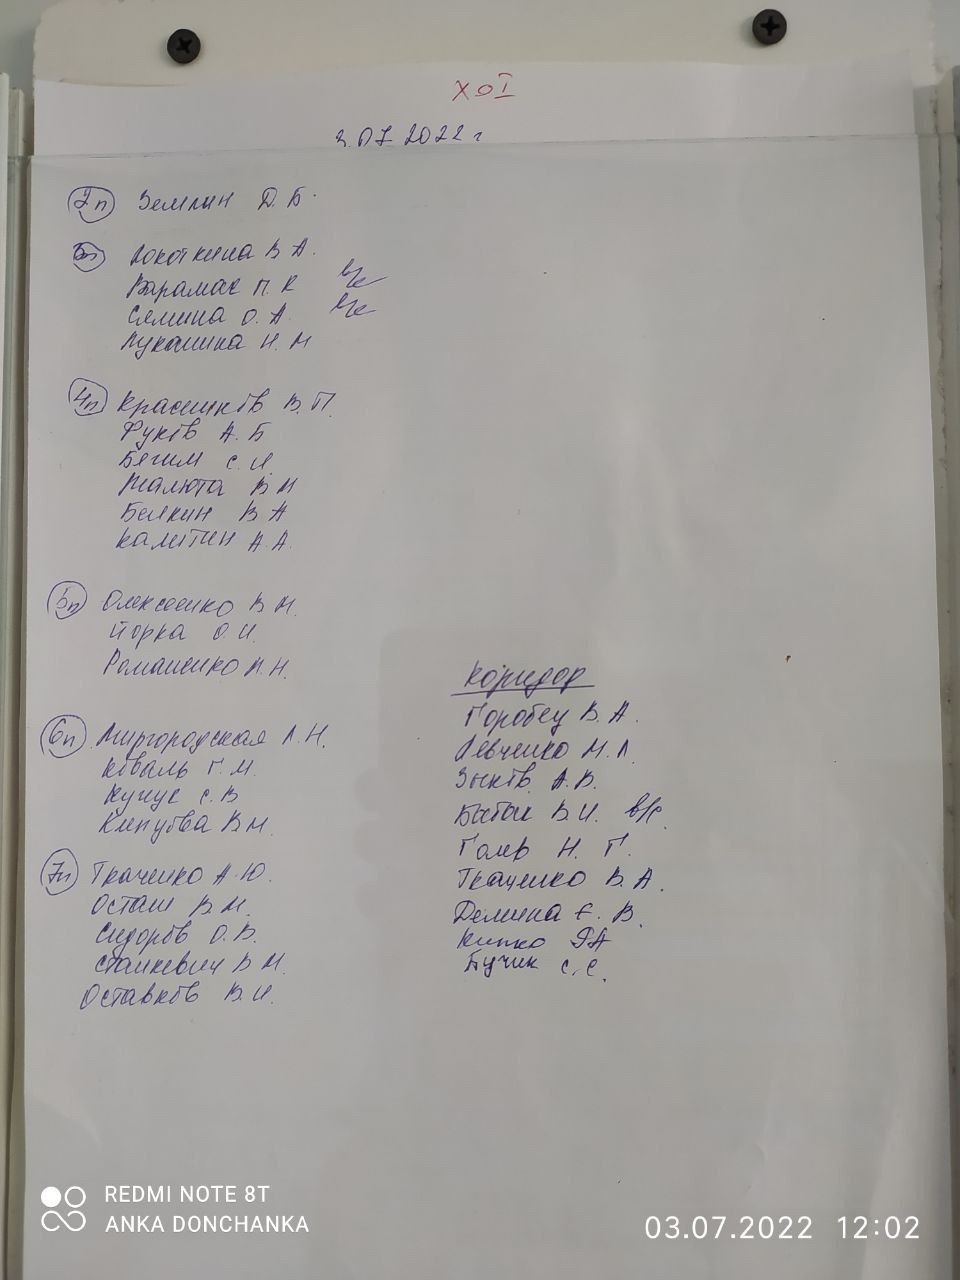 ХОІ
3.07.2022г
2п Землин Д.Б.
3п Локоткина В А.
Варамак П. К в/с
Сямина О. А. в/с
Лукашина Н. М
4п В.П.
Фуков А. Б
Бегим С. И.
Малюта В И
Белкин В А
Калитин А.А.
5п Олексеенко В Н.
Йорка О. И.
Романенко Н.
6п Миргородская Л.Н.
Коваль Г. М.
Кучук С. В
В М.
7п Ткаченко А.Ю.
Осташ В. М.
Сидоров О. В.
Станкевич В М.
Оставков В. И.
Коридор
Горобец В. А.
Левченко М. Л.
Зыков А.В.
В И. в/с.
Голер Н. Г.
Ткаченко В. А.
Демина Е. В.
Кипко
Бучик С. С.
REDMI NOTE 8T
ANKA DONCHANKA
03.07.2022 12:02